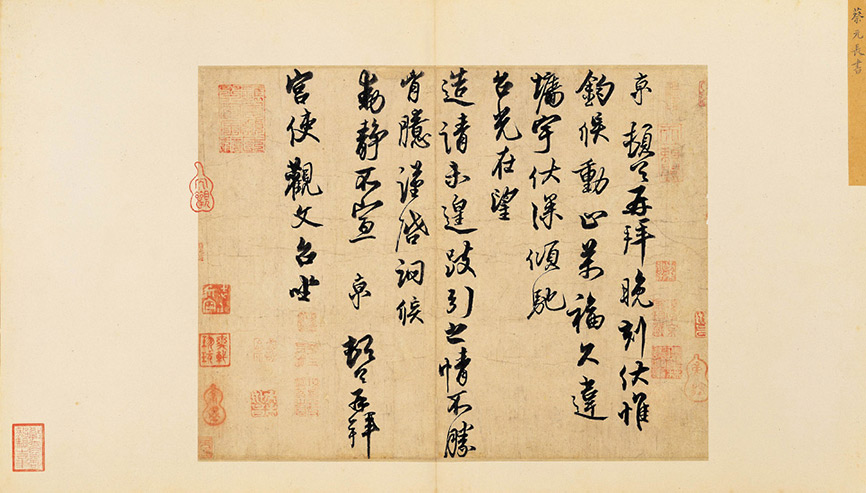 蔡元長書
京頓首再拜晚刻伏惟
鈞候動止萬福久違
墉宇伏深傾馳
台光在望
造請未遑跂引之情不勝
胷臆謹啓詗候
動靜不宣 京頓首再拜
宮使觀文台坐
大觀